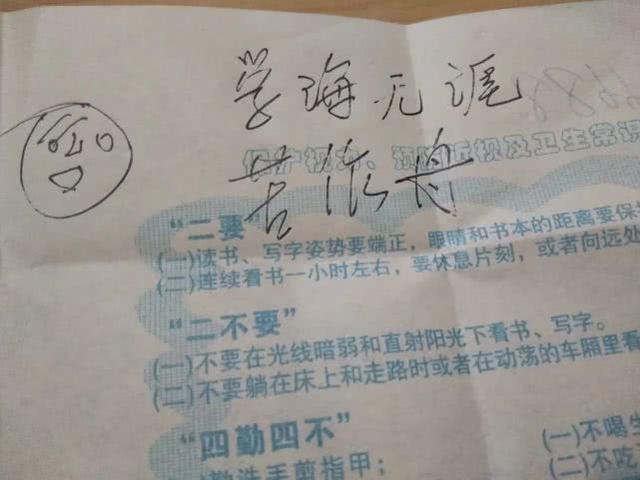 学海无涯
苦依舟
保护视力、预防近视及卫生常识
“二要”
(一)读书、写字姿势要端正，眼睛和书本的距离要保
(二)连续看书一小时左右，要休息片刻，或者向远处
“二不要”
(一)不要在光线暗弱和直射阳光下看书、写字。
(二)不要躺在床上和走路时或者在动荡的车厢里看
“四勤四不”
勤洗手剪指甲； (一)不喝生
(二)不吃